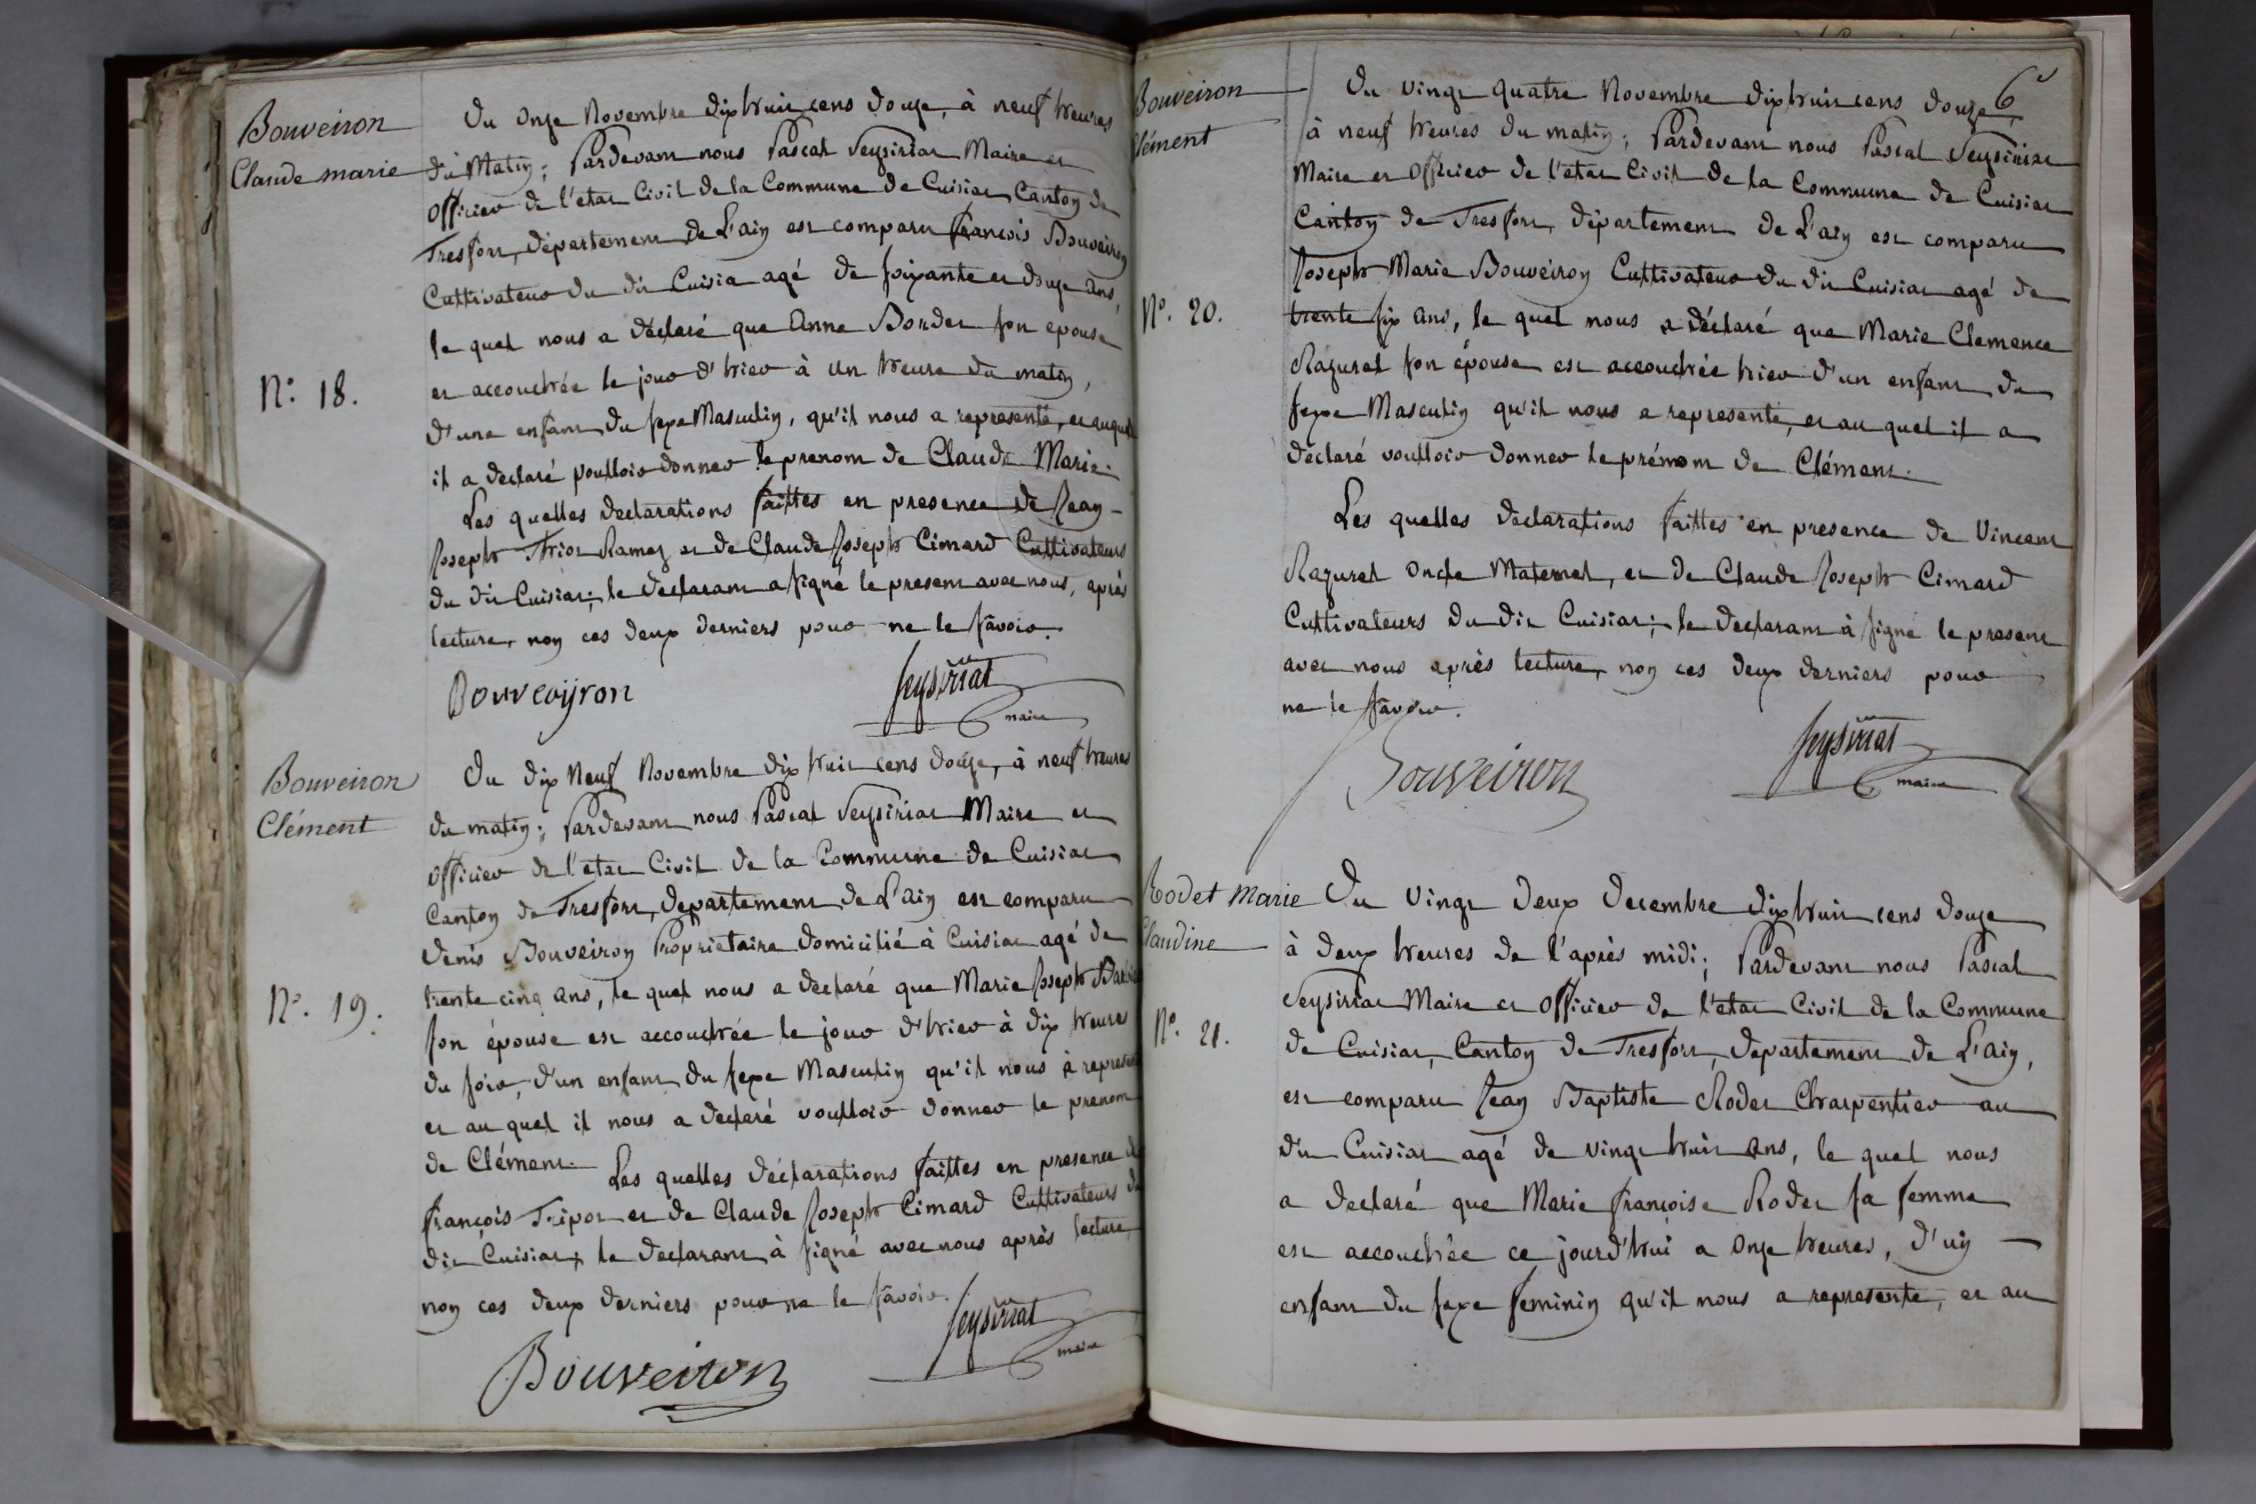 Bouveiron
Claude marie
Du onze Novembre dix huit cens douze, à neuf heures
du Matin; Pardevant nous Pascal Seysiriat Maire et
officier de l'etat Civil de la Commune de Cuisiat Canton de
Tresfort, département de L'ain est comparu françois Bouveiron
Cultivateur du dit Cuisia agé de soixante et douze ans,
le quel nous a déclaré que Anne Bondet son epouse
et accouchée le jour d'hier à un heure du matin,
N.° 18.
d'une enfant du sexe Masculin, qu'il nous a representé, et auquel
il a declaré voulloir donner le prenom de Claude Marie.
Les quelles declarations faittes en presence de Jean-
Joseph Ramaz et de Claude Joseph Cimard Cultivateurs
du dit Cuisiat; le declarant a signé le present avec nous, après
lecture, non ces deux derniers pour ne le sâvoir.
Bouveyron Seysiriat
maire
Bouveiron
Clément
Du dix Neuf Novembre dix huit cens douze, à neuf heures
du matin; Pardevant nous Pascal Seysiriat Maire et
officier de l'etat Civil de la Commune de Cuisiat
Canton de Tresfort, departement de L'ain est comparu
denis Bouveiron Propriétaire domicilié à Cuisiat agé de
N.° 19.
trente cinq ans, le quel nous a declaré que Marie Joseph
son épouse est accouchée le jour d'hier à dix heures
du soir, d'un enfant du sexe Masculin qu'il nous à represen
et au quel il nous a declaré voulloir donner le prenom
de Clément. Les quelles déclarations faittes en presence de
françois Tripoz et de Claude Joseph Cimard Cultivateurs du
dit Cuisiat; le declarant à signé avec nous après lecture,
non ces deux derniers pour ne le sâvoir.
Seysiriat
maire
Bouveiron
6
Bouveiron
Clément
Du vingt quatre Novembre dix huit cens douze,
à neuf heures du matin; Pardevant nous Pascal Seysiriat
Maire et officier de l'etat Civil de la Commune de Cuisiat
Canton de Tresfort, département de L'ain est comparu
Joseph Marie Bouveiron Cultivateur du dit Cuisiat agé de
N.° 20.
trente six ans, le quel nous a déclaré que Marie Clemence
Razurel son épouse est accouchée hier d'un enfant du
sexe Masculin qu'il nous a representé, et au quel il a
déclaré voulloir donner le prénom de Clément.
Les quelles declarations faittes en presence de Vincent
Razurel oncle Maternel, et de Claude Joseph Cimard
Cultivateurs du dit Cuisiat; le declarant à signé le present
avec nous après lecture, non ces deux derniers pour
ne le sâvoir.
Seysiriat
maire
Bouveiron
Rodet Marie
Claudine
Du vingt deux decembre dix huit cens douze
à deux heures de l'après midi; Pardevant nous Pascal
Seysiriat Maire et officier de l'etat Civil de la Commune
N.° 21.
de Cuisiat, Canton de Tresfort, departement de L'ain,
est comparu Jean Baptiste Rodet Charpentier au
dit Cuisiat agé de vingt huit ans, le quel nous
a declaré que Marie françoise Rodet sa femme
est accouchée ce jourd'hui a onze heures, d'un
enfant du sexe feminin qu'il nous a representé, et au